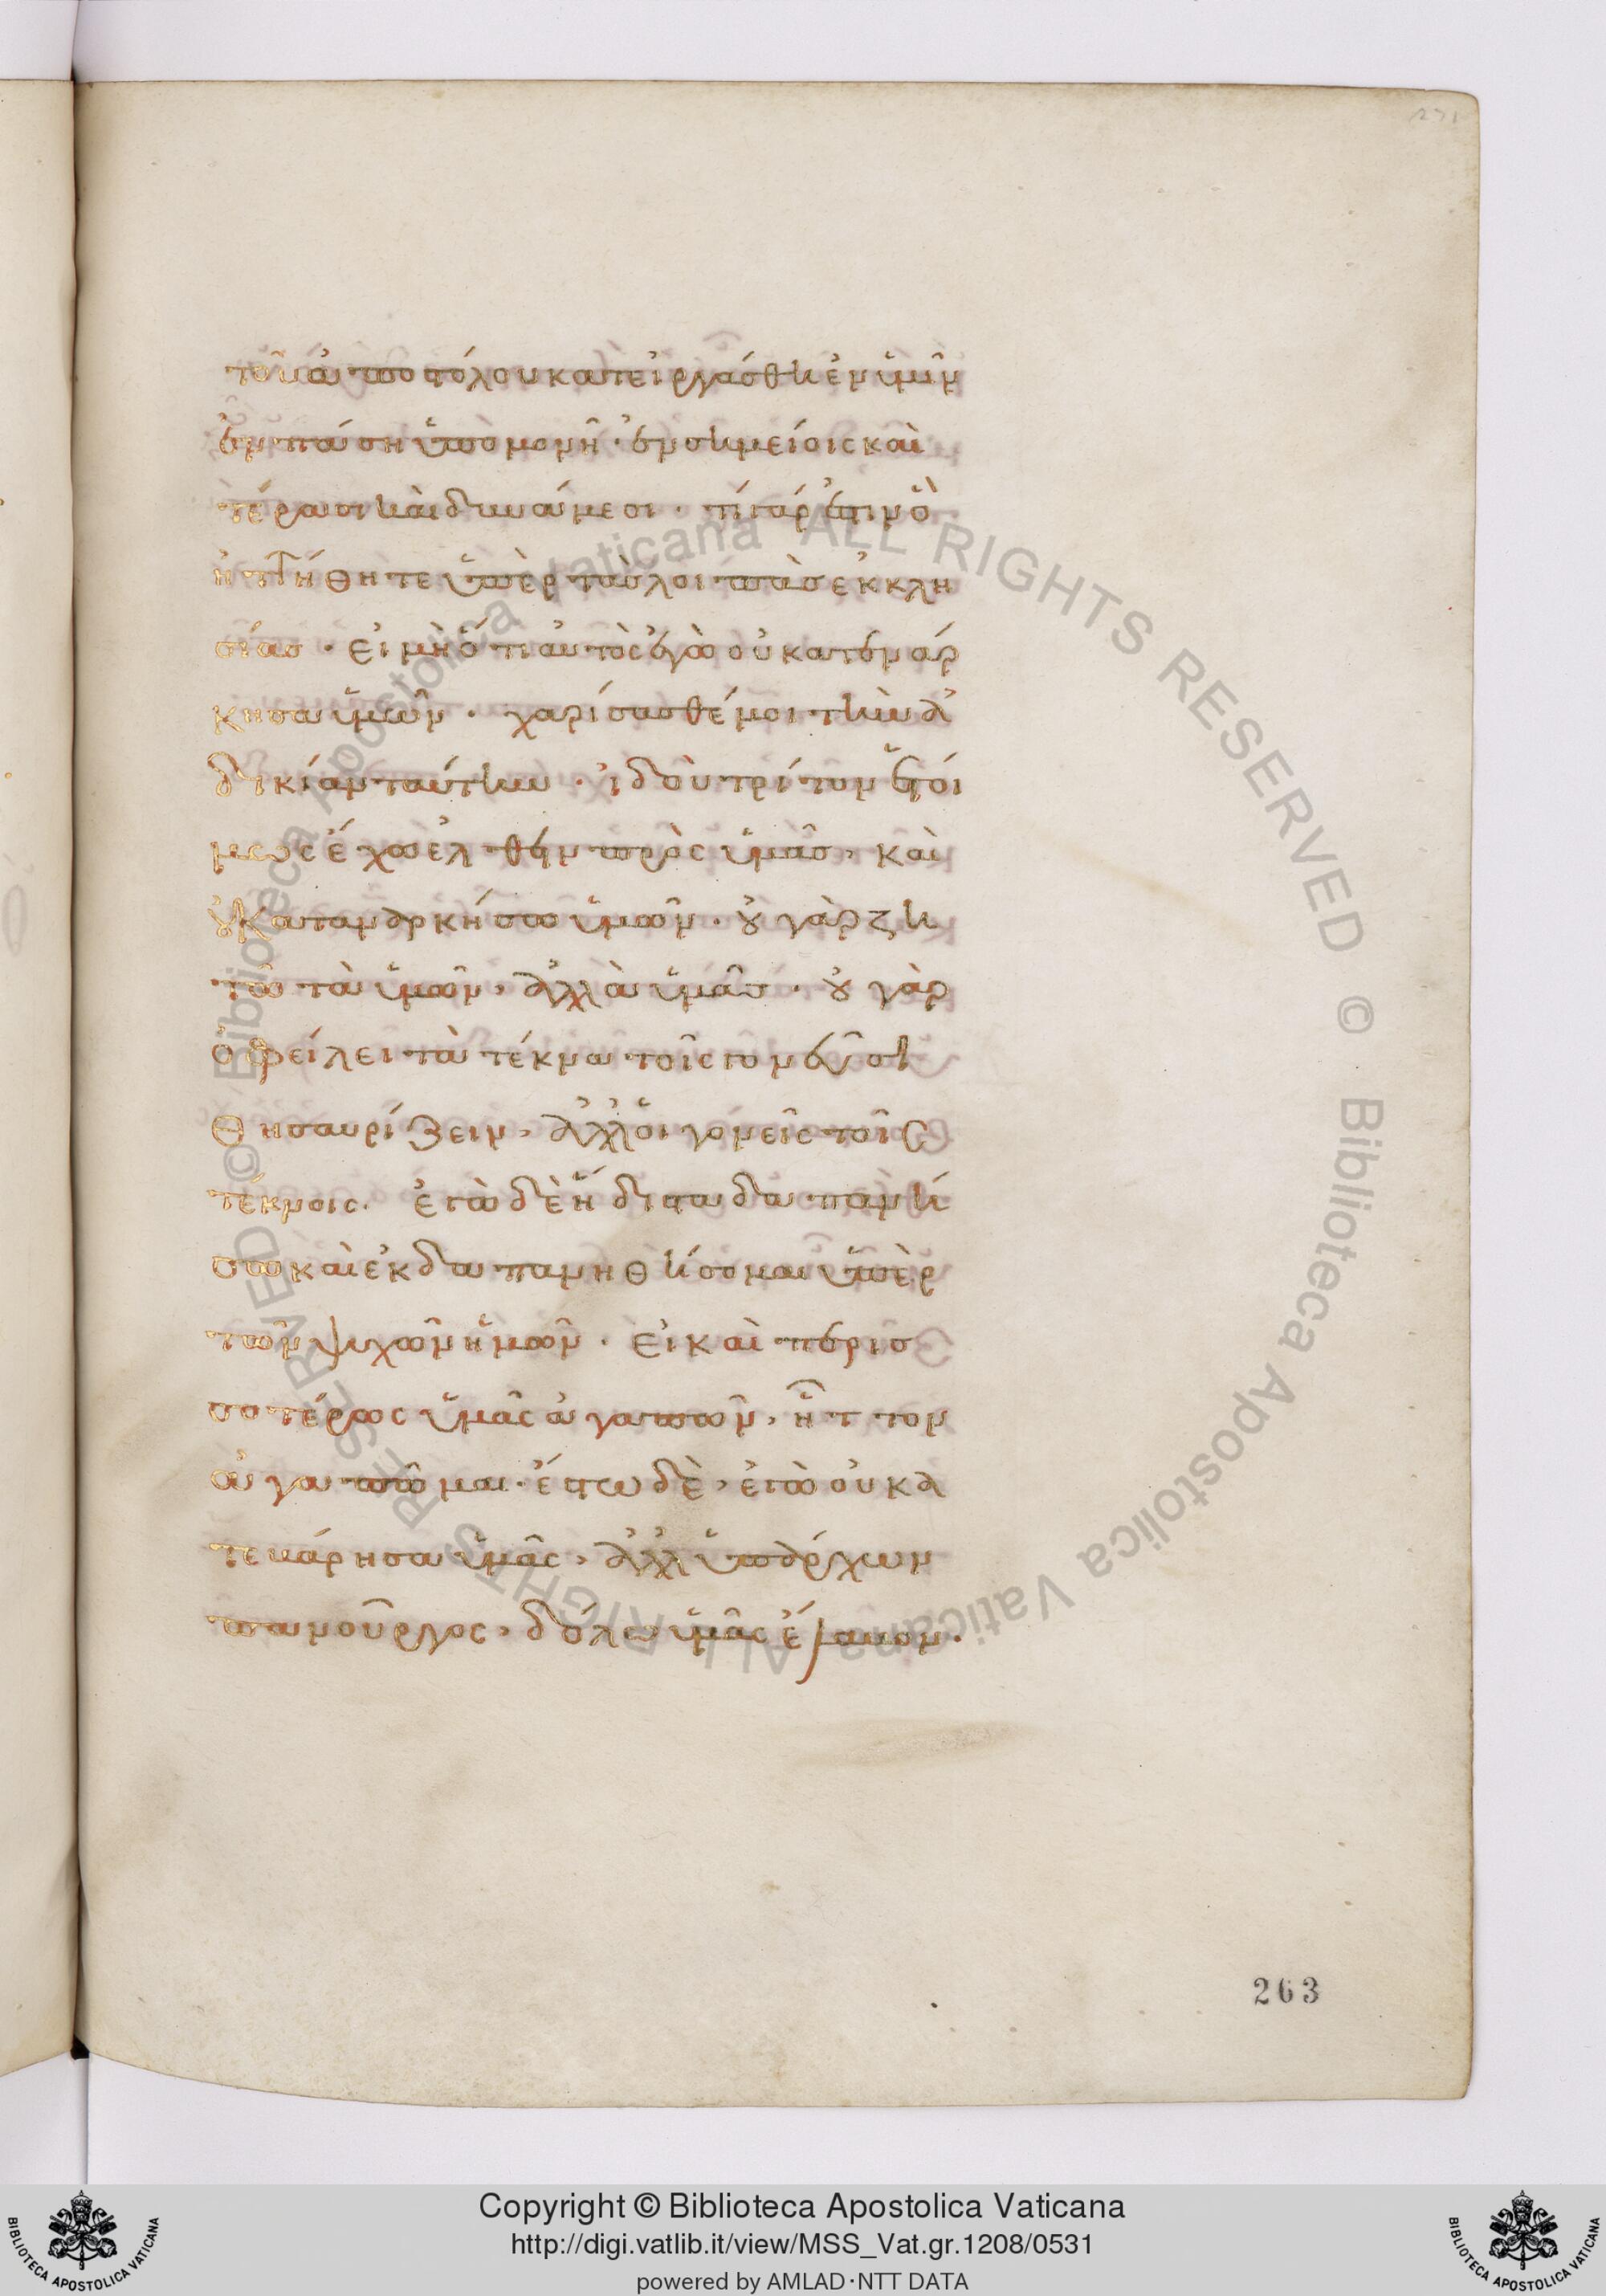 τοῦ ἀποστόλου κατειργάσθη ἐν ὑμῖν
ἐν πάση ὑπομονῆ· ἐν σημείοις καὶ
τέρασι καὶ δυνάμεσι· τί γάρ ἐστιν ὃ
ἡττήθητε ὑπὲρ τὰς λοιπὰς ἐκκλη
σίας· εἰ μὴ ὅτι αὐτὸς ἐγὼ οὐ κατενάρ
κησα ὑμῶν· χαρίσασθέ μοι τὴν ἀ
δικίαν ταύτην· ἰδοὺ τρίτον ἑτοί
μως ἔχω ἐλθεῖν πρὸς ὑμᾶς, καὶ
οὐ καταναρκήσω ὑμῶν· οὐ γὰρ ζη
τῶ τὰ ὑμῶν, ἀλλὰ ὑμᾶς· οὐ γὰρ
ὀφείλει τὰ τέκνα τοῖς γονεῦσι
θησαυρίζειν, ἀλλ' οἱ γονεῖς τοῖς
τέκνοις. ἐγὼ δὲ ἥδιστα δαπανή
σω καὶ ἐκδαπανηθήσομαι ὑπὲρ
τῶν ψυχῶν ἡμῶν· εἰ καὶ περισ
σοτέρως ὑμᾶς ἀγαπῶν, ἧττον
ἀγαπῶμαι· ἔστω δὲ, ἐγὼ οὐ κα
τενάρησα ὑμᾶς, ἀλλ' ὑπάρχων
πανοῦργος, δόλω ὑμᾶς ἔλαβον.
263
Copyright © Biblioteca Apostolica Vaticana
http://digi.vatlib.it/view/MSS_Vat.gr.1208/0531
powered by AMLAD·NTT DATA
BIBLIOTECA APOSTOLICA VATICANA
BIBLIOTECA APOSTOLICA VATICANA
© Biblioteca Apostolica Vaticana ALL RIGHTS RESERVED © Biblioteca Apostolica Vaticana ALL RIGHTS RESERVED